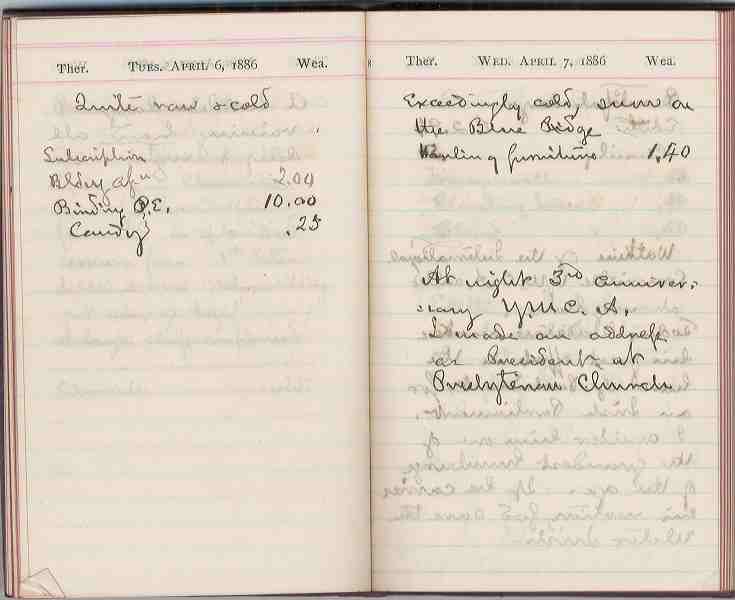 Ther. TUES. APRIL 6, 1886 Wea.
Quite raw & cold
Subscription
Bldg 2.00
Binding P.E. 10.00
Candy .25
Ther. WED. APRIL 7, 1886 Wea.
Exceedingly cold, snow on
the Blue Ridge
Hauling furniture 1.40
At night 3rd anniver-
sary Y.M.C.A.
I made an address
as President at
Presbyterian Church